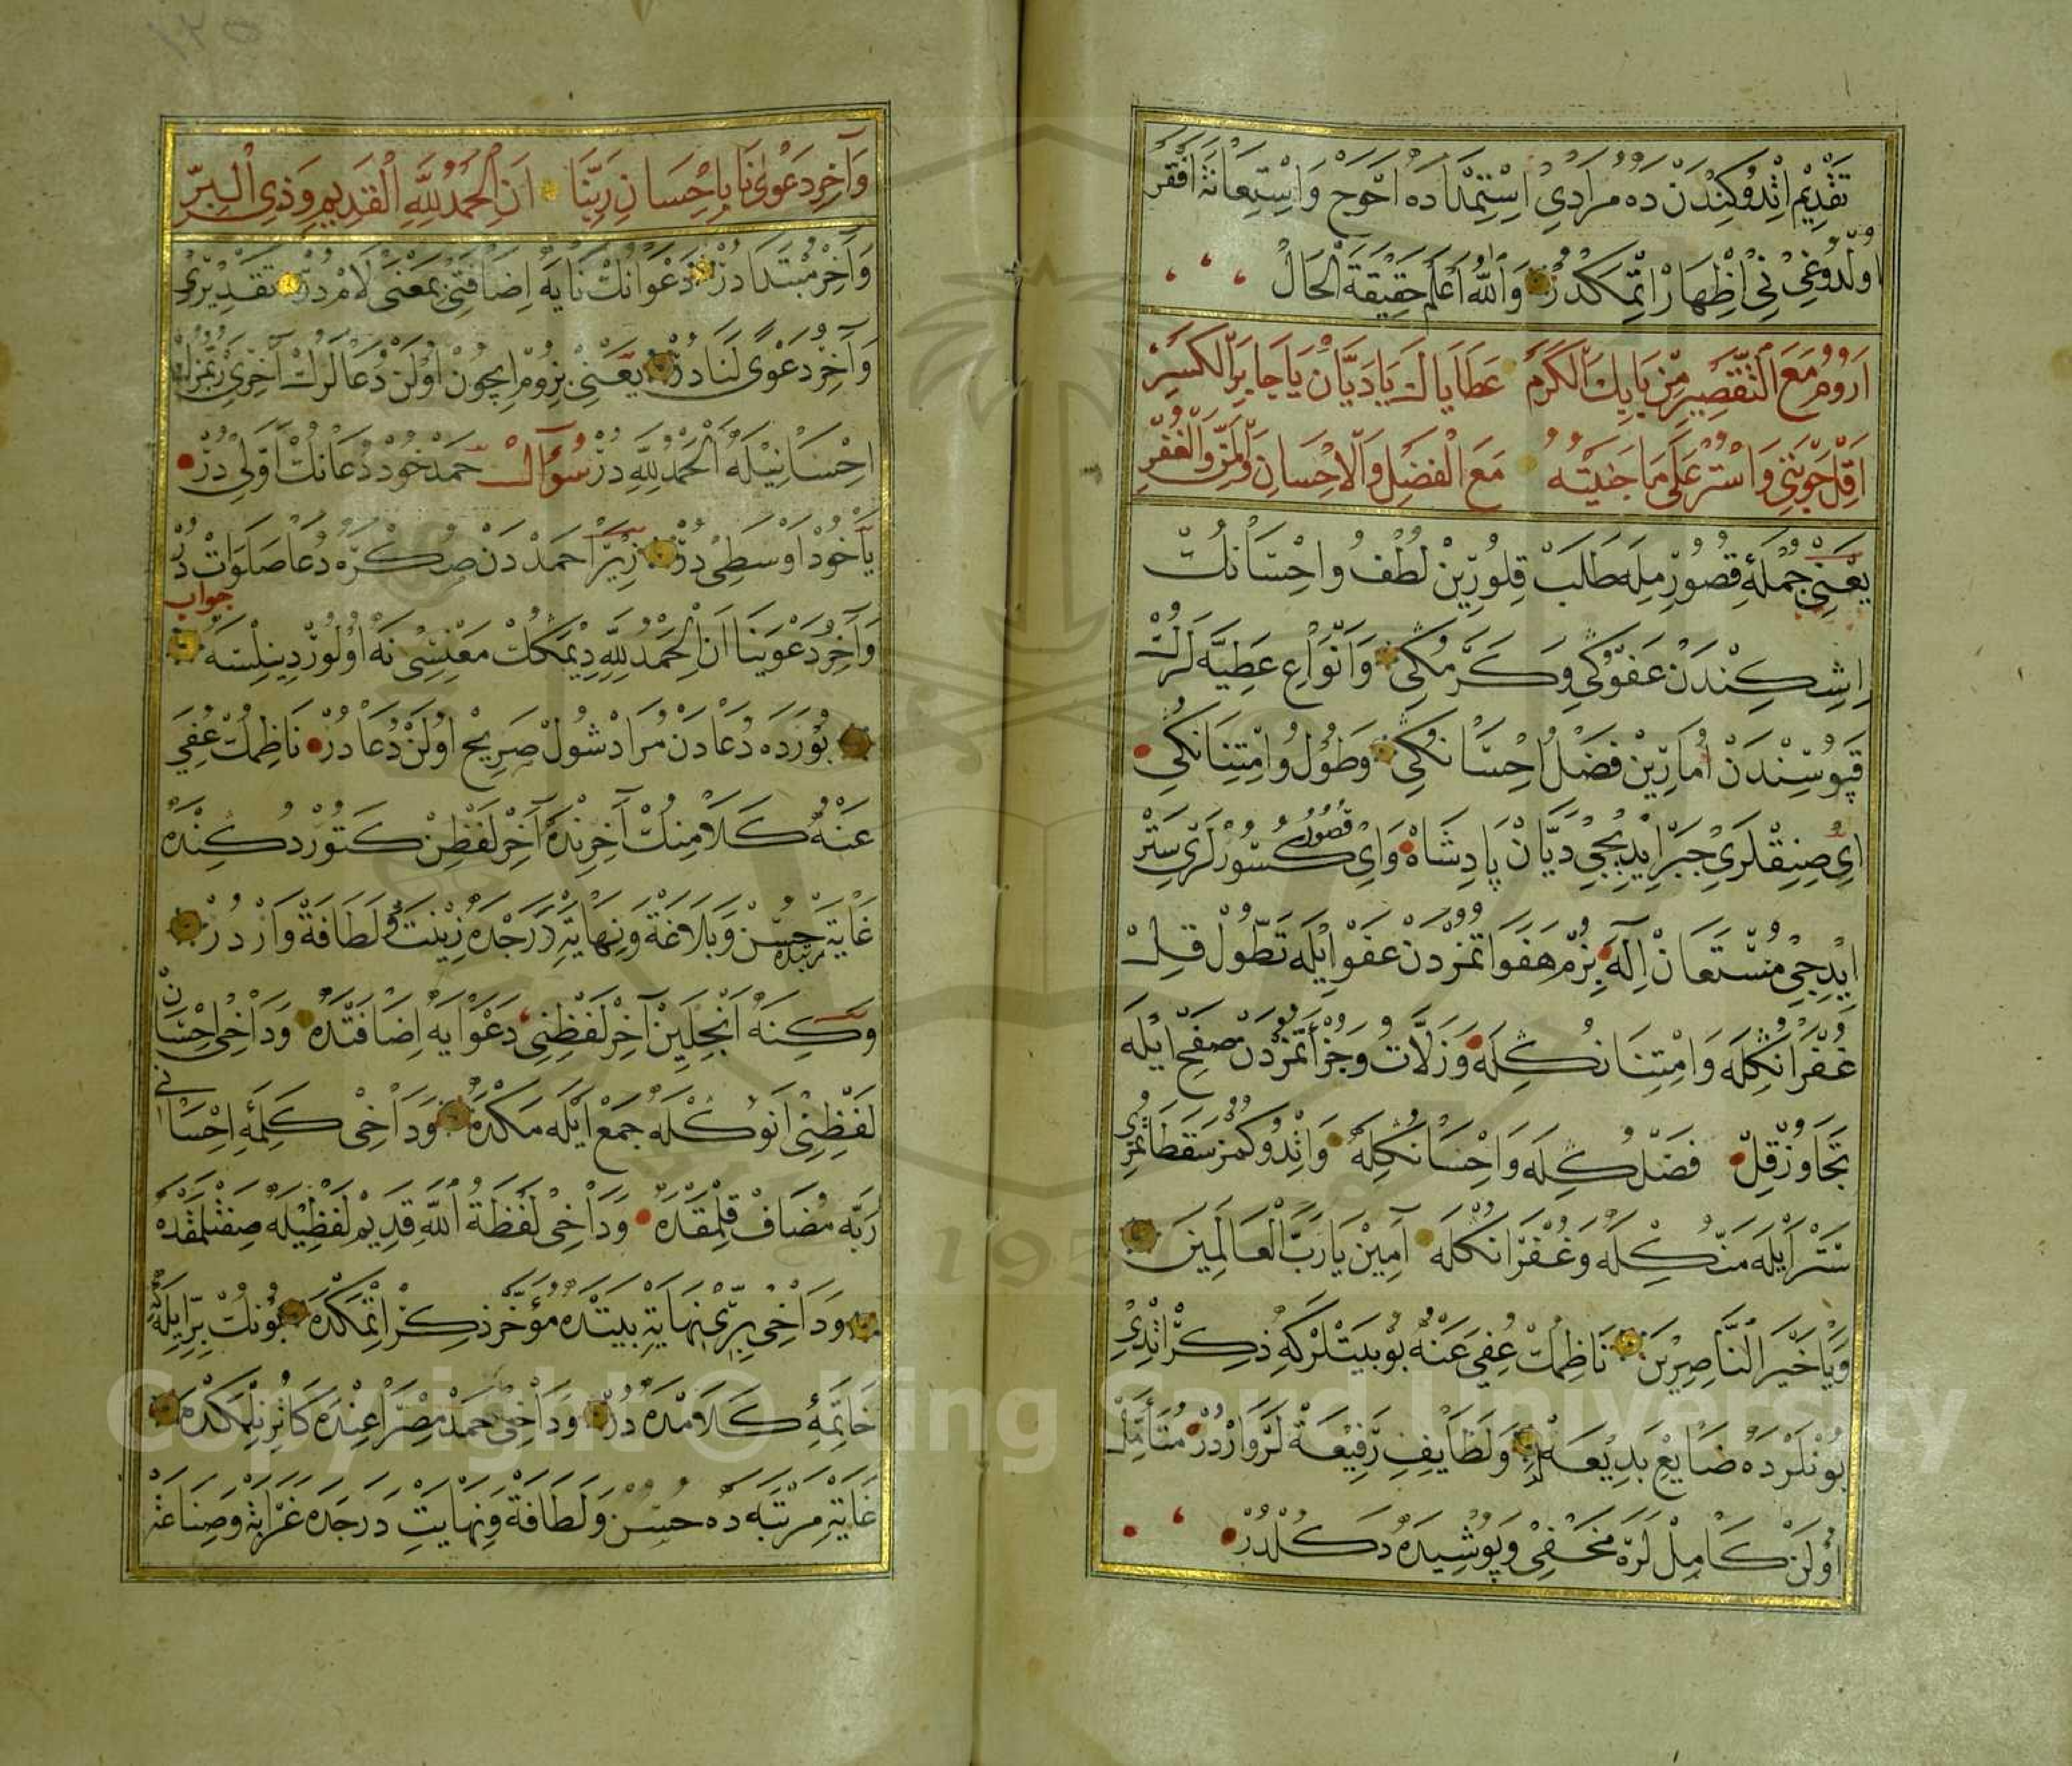 تقديم اتدوكندن ده مرادي استمداده احوج واستعانة افقر
اولدوغنى نى اظهار اتمكدر والله اعلم حقيقة الحال
اروم مع التقصير من بابك الكرم عطاياك ياديان ياجابر الكسر
اقل حوبتي واستر على ماجنيته مع الفضل والاحسان والمن والغفر
يعني جمله قصورمله طلب قلورين لطف واحسانك
اشكندن عفوكي وكرمكي وانواع عطيه لرك
قپوسندن امارين فضل احسانكي وطول وامتنانكي
اي صنقلري جبر ايديجي ديان پادشاه واي قصور كسورلري ستر
ايديجي مستعان اله بزم هفواتمزدن عفو ايله تطول قل
غفرانكله وامتنانكله وزلات وجزأتمزدن صفح ايله
تجاوز قل فضلكله واحسانكله واتدوكمز سقطاتمزي
ستر ايله منكله وغفرانكله آمين يارب العالمين
وياخير الناصرين ناظمك عفي عنه بو بيتلر كه ذكر اتدي
بونلرده ضايع بديعه لر ولطايف رفيعة لر واردر متأمل
اولن كامل لره مخفي وپوشيده دكلدر
وآخر دعوىنا باحسان ربنا ان الحمد لله القديم وذي البر
وآخر مبتدادر دعوانك نايه اضافتي بمعنى لامدر تقديري
وآخر دعوى لنادر يعني بزوم ايچون اولن دعالرك آخري ربمزك
احسانيله الحمد لله در سؤال حمد خود دعانك اولى در
ياخود اوسطى در زيرا حمددن صكره دعا صلوات در
جواب
وآخر دعوينا ان الحمد لله ديمكك معنسى نه اولور دينلسه
بورده دعادن مراد شول صريح اولن دعادر ناظمك عفي
عنه كلامنك آخرنده آخر لفظن كتوردكنده
غاية مرتبده حسن وبلاغة ونهاية درجده زينت ولطافة واردر
وكنه انجلين آخر لفظني دعوايه اضافتده وداخى احسان
لفظني انوكله جمع ايلمكده وداخى كلمه احساني
ربه مضاف قلمقده وداخى لفظة الله قديم لفظيله صفتلمقده
وداخى برى نهاية بيتده مؤخر ذكر اتمكده بونك بر ايله
خاتمه كلامده در وداخى حمد مصراعنده كائر نلمكده
غاية مرتبه ده حسن ولطافة ونهايت درجده غرابة وصناعة
Copyright © King Saud University